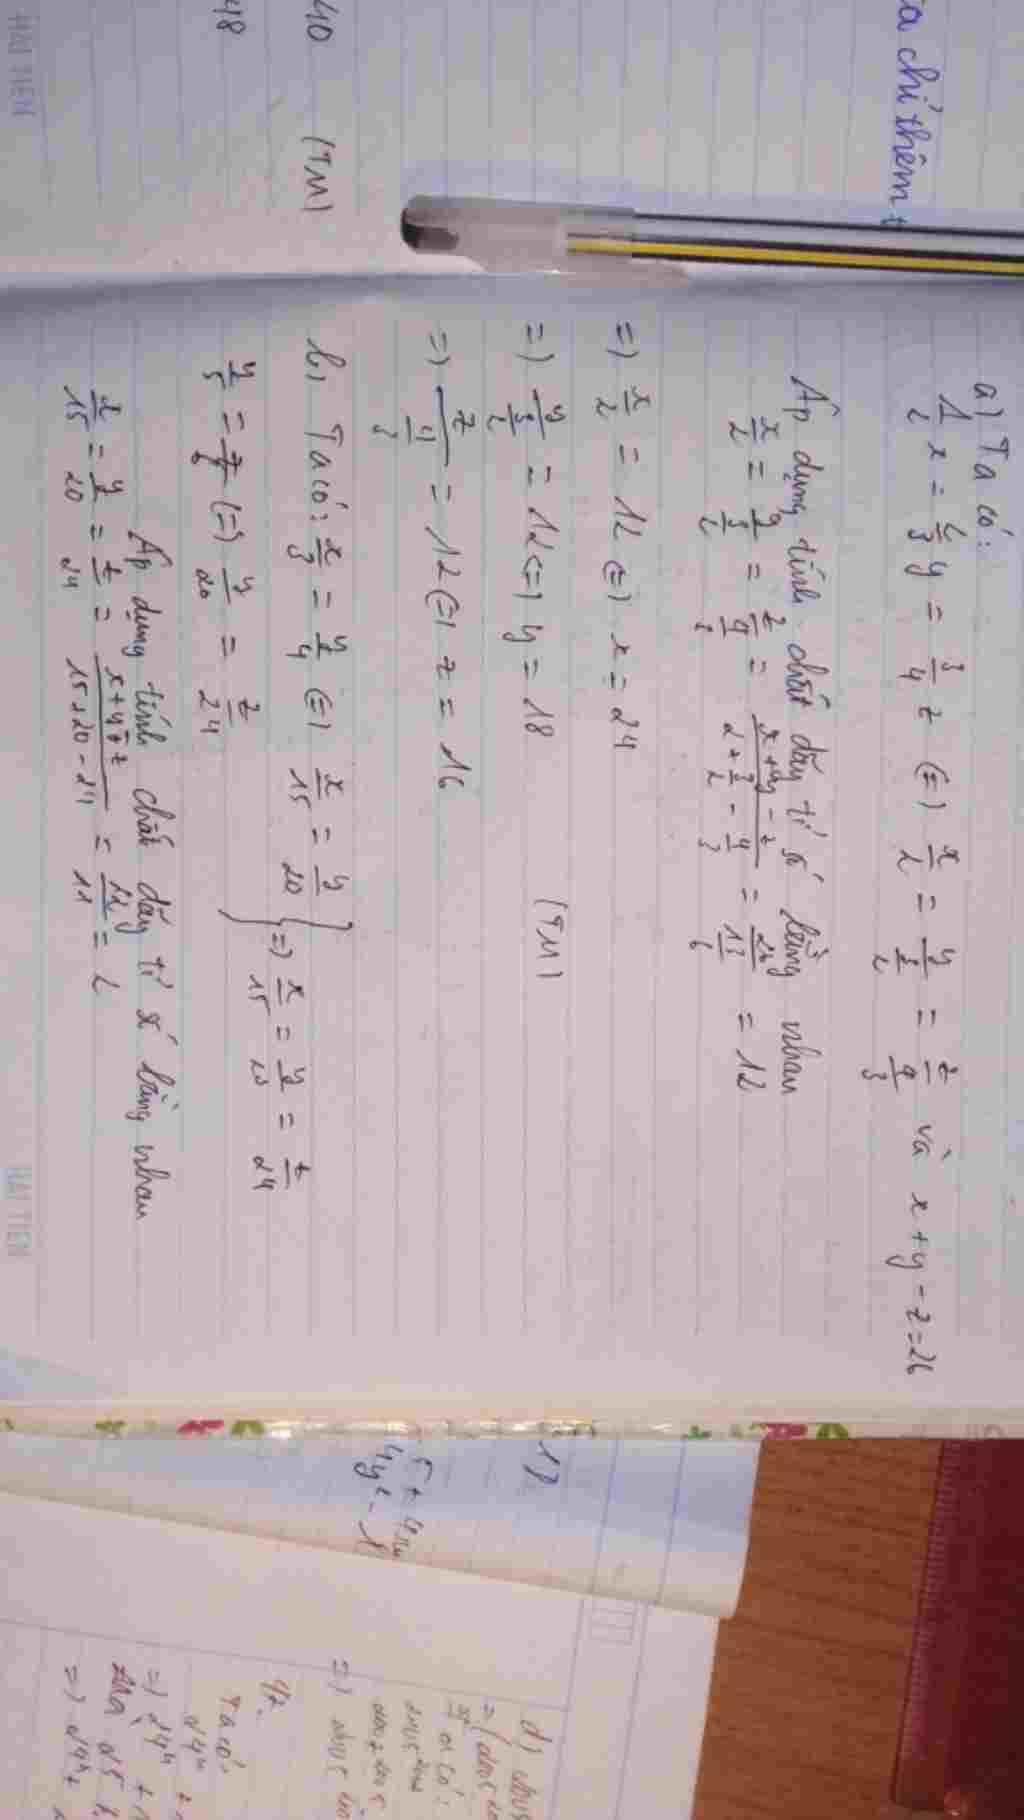 a chỉ thêm
40
(TM)
48
a) Ta có:
1/2 x = 2/3 y = 3/4 z (=) x/2 = y/(3/2) = z/(4/3) và x + y - z = 26
Áp dụng tính chất dãy tỉ số bằng nhau
x/2 = y/(3/2) = z/(4/3) = (x + y - z)/(2 + 3/2 - 4/3) = 26/(13/6) = 12
=) x/2 = 12 (=) x = 24
=) y/(3/2) = 12 (=) y = 18
(TM)
=) z/(4/3) = 12 (=) z = 16
b) Ta có: x/3 = y/4 (=) x/15 = y/20
y/5 = z/6 (=) y/20 = z/24
} =) x/15 = y/20 = z/24
Áp dụng tính chất dãy tỉ số bằng nhau
x/15 = y/20 = z/24 = (x + y - z)/(15 + 20 - 24) = 22/11 = 2
HẢI TIẾN
HẢI TIẾN
Ta có: